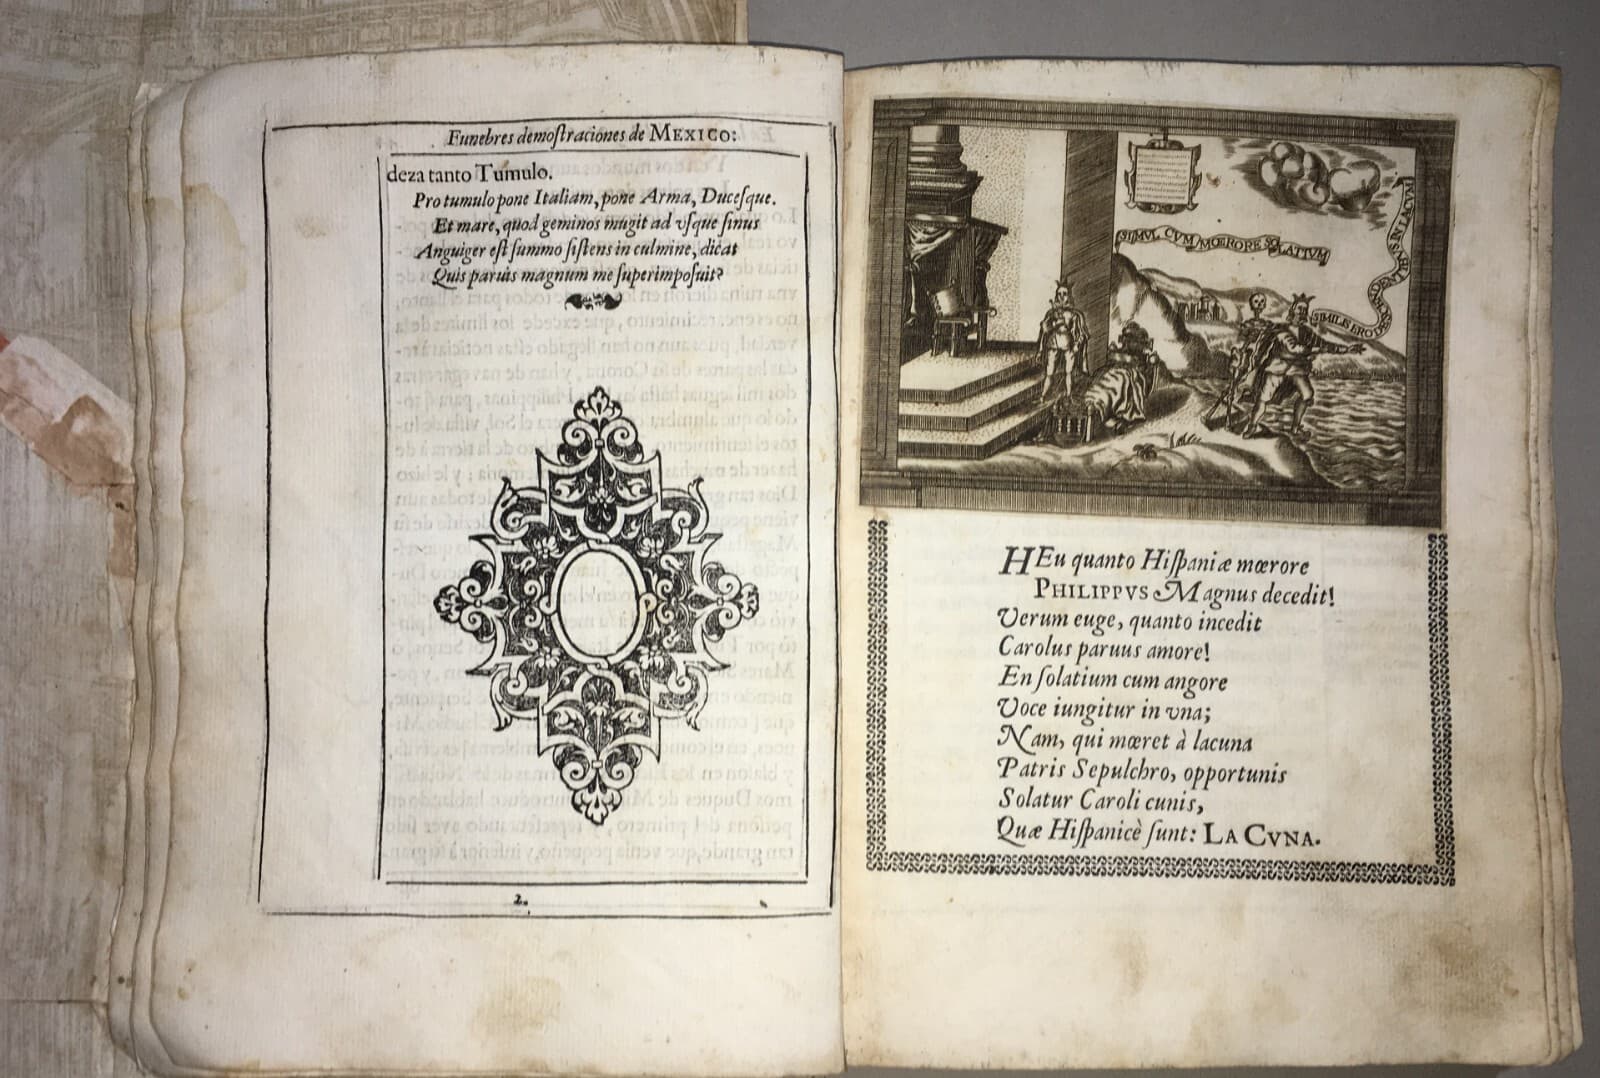 Funebres demoſtraciónes de MEXICO:
deza tanto Tumulo.
Pro tumulo pone Italiam, pone Arma, Duceſque.
Et mare, quod geminos mugit ad vſque ſinus
Anguiger eſt ſummo ſiſtens in culmine, dicat
Quis paruis magnum me ſuperimpoſuit?
2.
SIMVL CVM MŒRORE SOLATIVM
SIMILIS ERO DESCENDENTIBVS IN LACVM
HEu quanto Hiſpaniæ mœrore
PHILIPPVS Magnus decedit!
Verum euge, quanto incedit
Carolus paruus amore!
En ſolatium cum angore
Voce iungitur in vna;
Nam, qui mœret à lacuna
Patris Sepulchro, opportunis
Solatur Caroli cunis,
Quæ Hiſpanicè ſunt: LA CVNA.